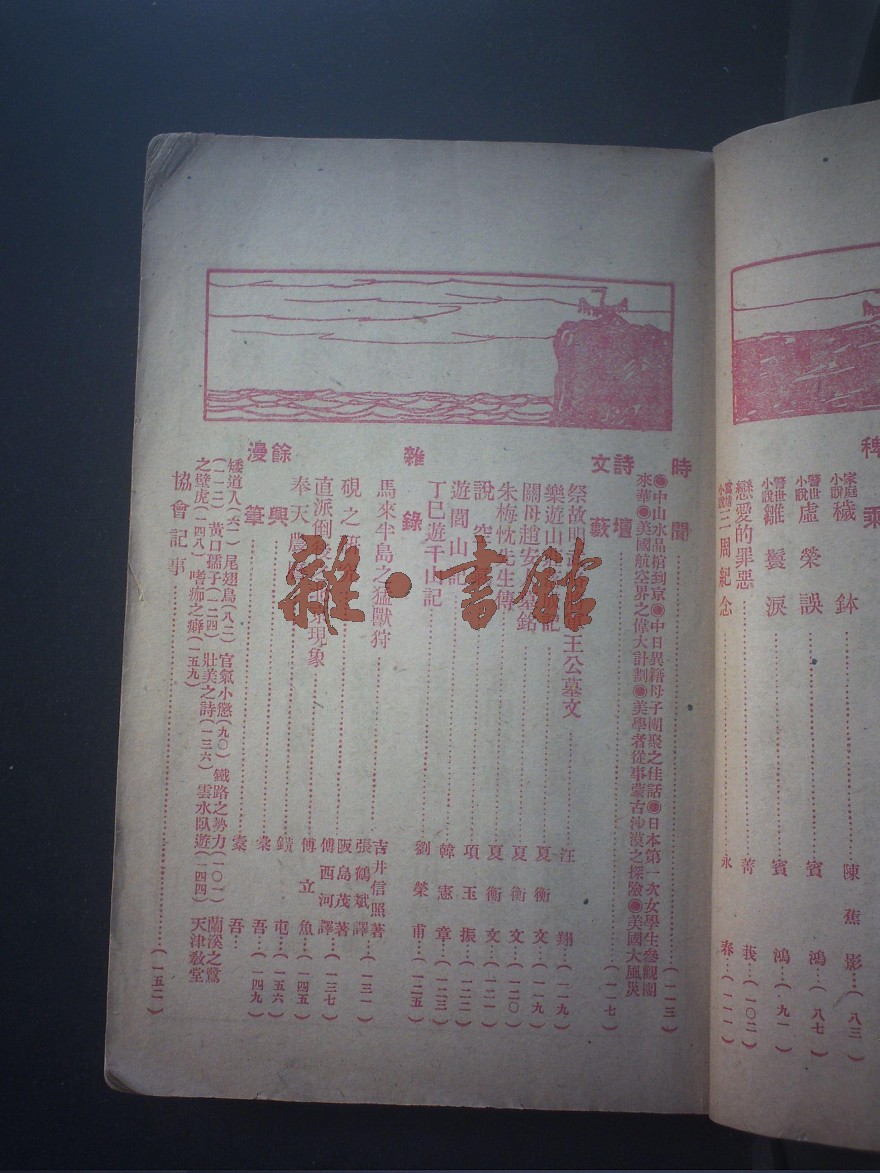 稗乘
家庭小說 穢鉢 陳蕉影 (八三)
警世小說 虛榮誤 賓鴻 (八七)
警世小說 雛鬟淚 賓鴻 (九一)
戀愛的罪惡 菁莪 (一〇二)
三周紀念 永春 (一一一)
時聞 (一一三)
◉中山水晶棺到京◉中日異籍母子團聚之佳話◉日本第一次女學生參觀團
來華◉美國航空界之偉大計劃◉美學者從事蒙古沙漠之探險◉美國大風災
詩壇 (一一七)
文藪
祭故明 王公墓文 汪翔 (一一九)
樂遊山 記 夏衡文 (一一九)
關母趙安 墓銘 夏衡文 (一二〇)
朱梅忱先生傳 夏衡文 (一二一)
說空 項玉振 (一二二)
遊閭山記 韓憲章 (一二三)
丁巳遊千山記 劉榮甫 (一二五)
雜錄
馬來半島之猛獸狩 吉井信照著 張鶴斌譯 (一三一)
硯之 阪島茂著 傅西河譯 (一三七)
直派倒 現象 傅立魚 (一四五)
奉天農 鐵屯 (一五六)
餘興 稾吾 (一四九)
漫筆 稾吾
矮道人(六) 尾翅鳥(八二) 官氣小懲(九〇) 鐵路之勢力(一〇一) 蘭溪之鶯
(一一二) 黃口孺子(一二四) 壯美之詩(一三六) 雲水臥遊(一四四) 天津敎堂
之壁虎(一四八) 嗜痂之癖(一五九)
協會記事 (一五二)
雜·書館